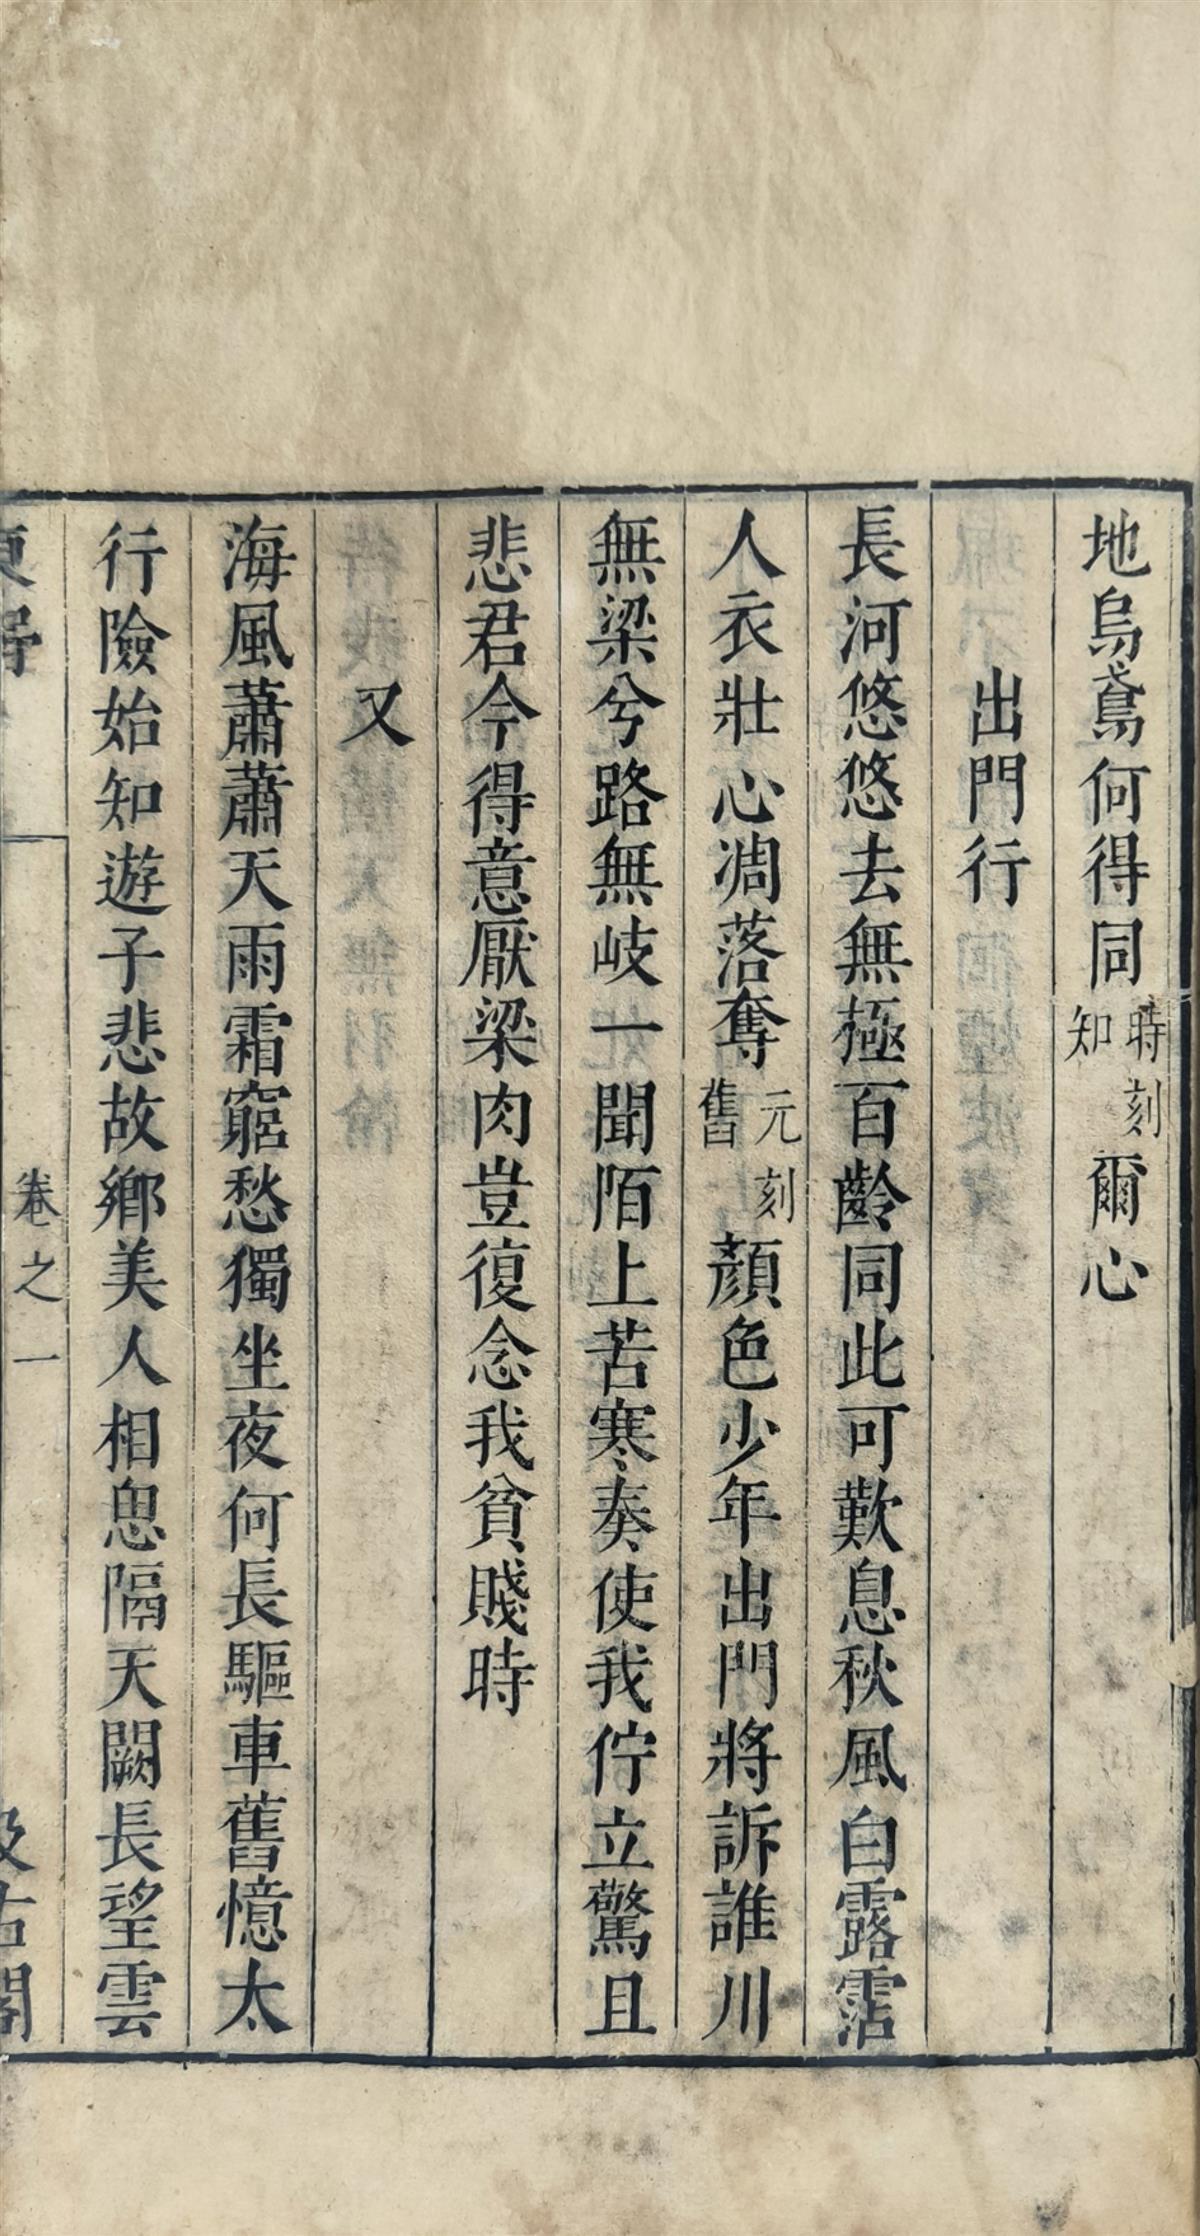 地烏鳶何得同時刻知爾心
出門行
長河悠悠去無極百齡同此可歎息秋風白露霑
人衣壯心凋落奪元刻舊顏色少年出門將訴誰川
無梁兮路無岐一聞陌上苦寒奏使我佇立驚且
悲君今得意厭梁肉豈復念我貧賤時
又
海風蕭蕭天雨霜窮愁獨坐夜何長驅車舊憶太
行險始知遊子悲故鄉美人相思隔天闕長望雲
卷之一